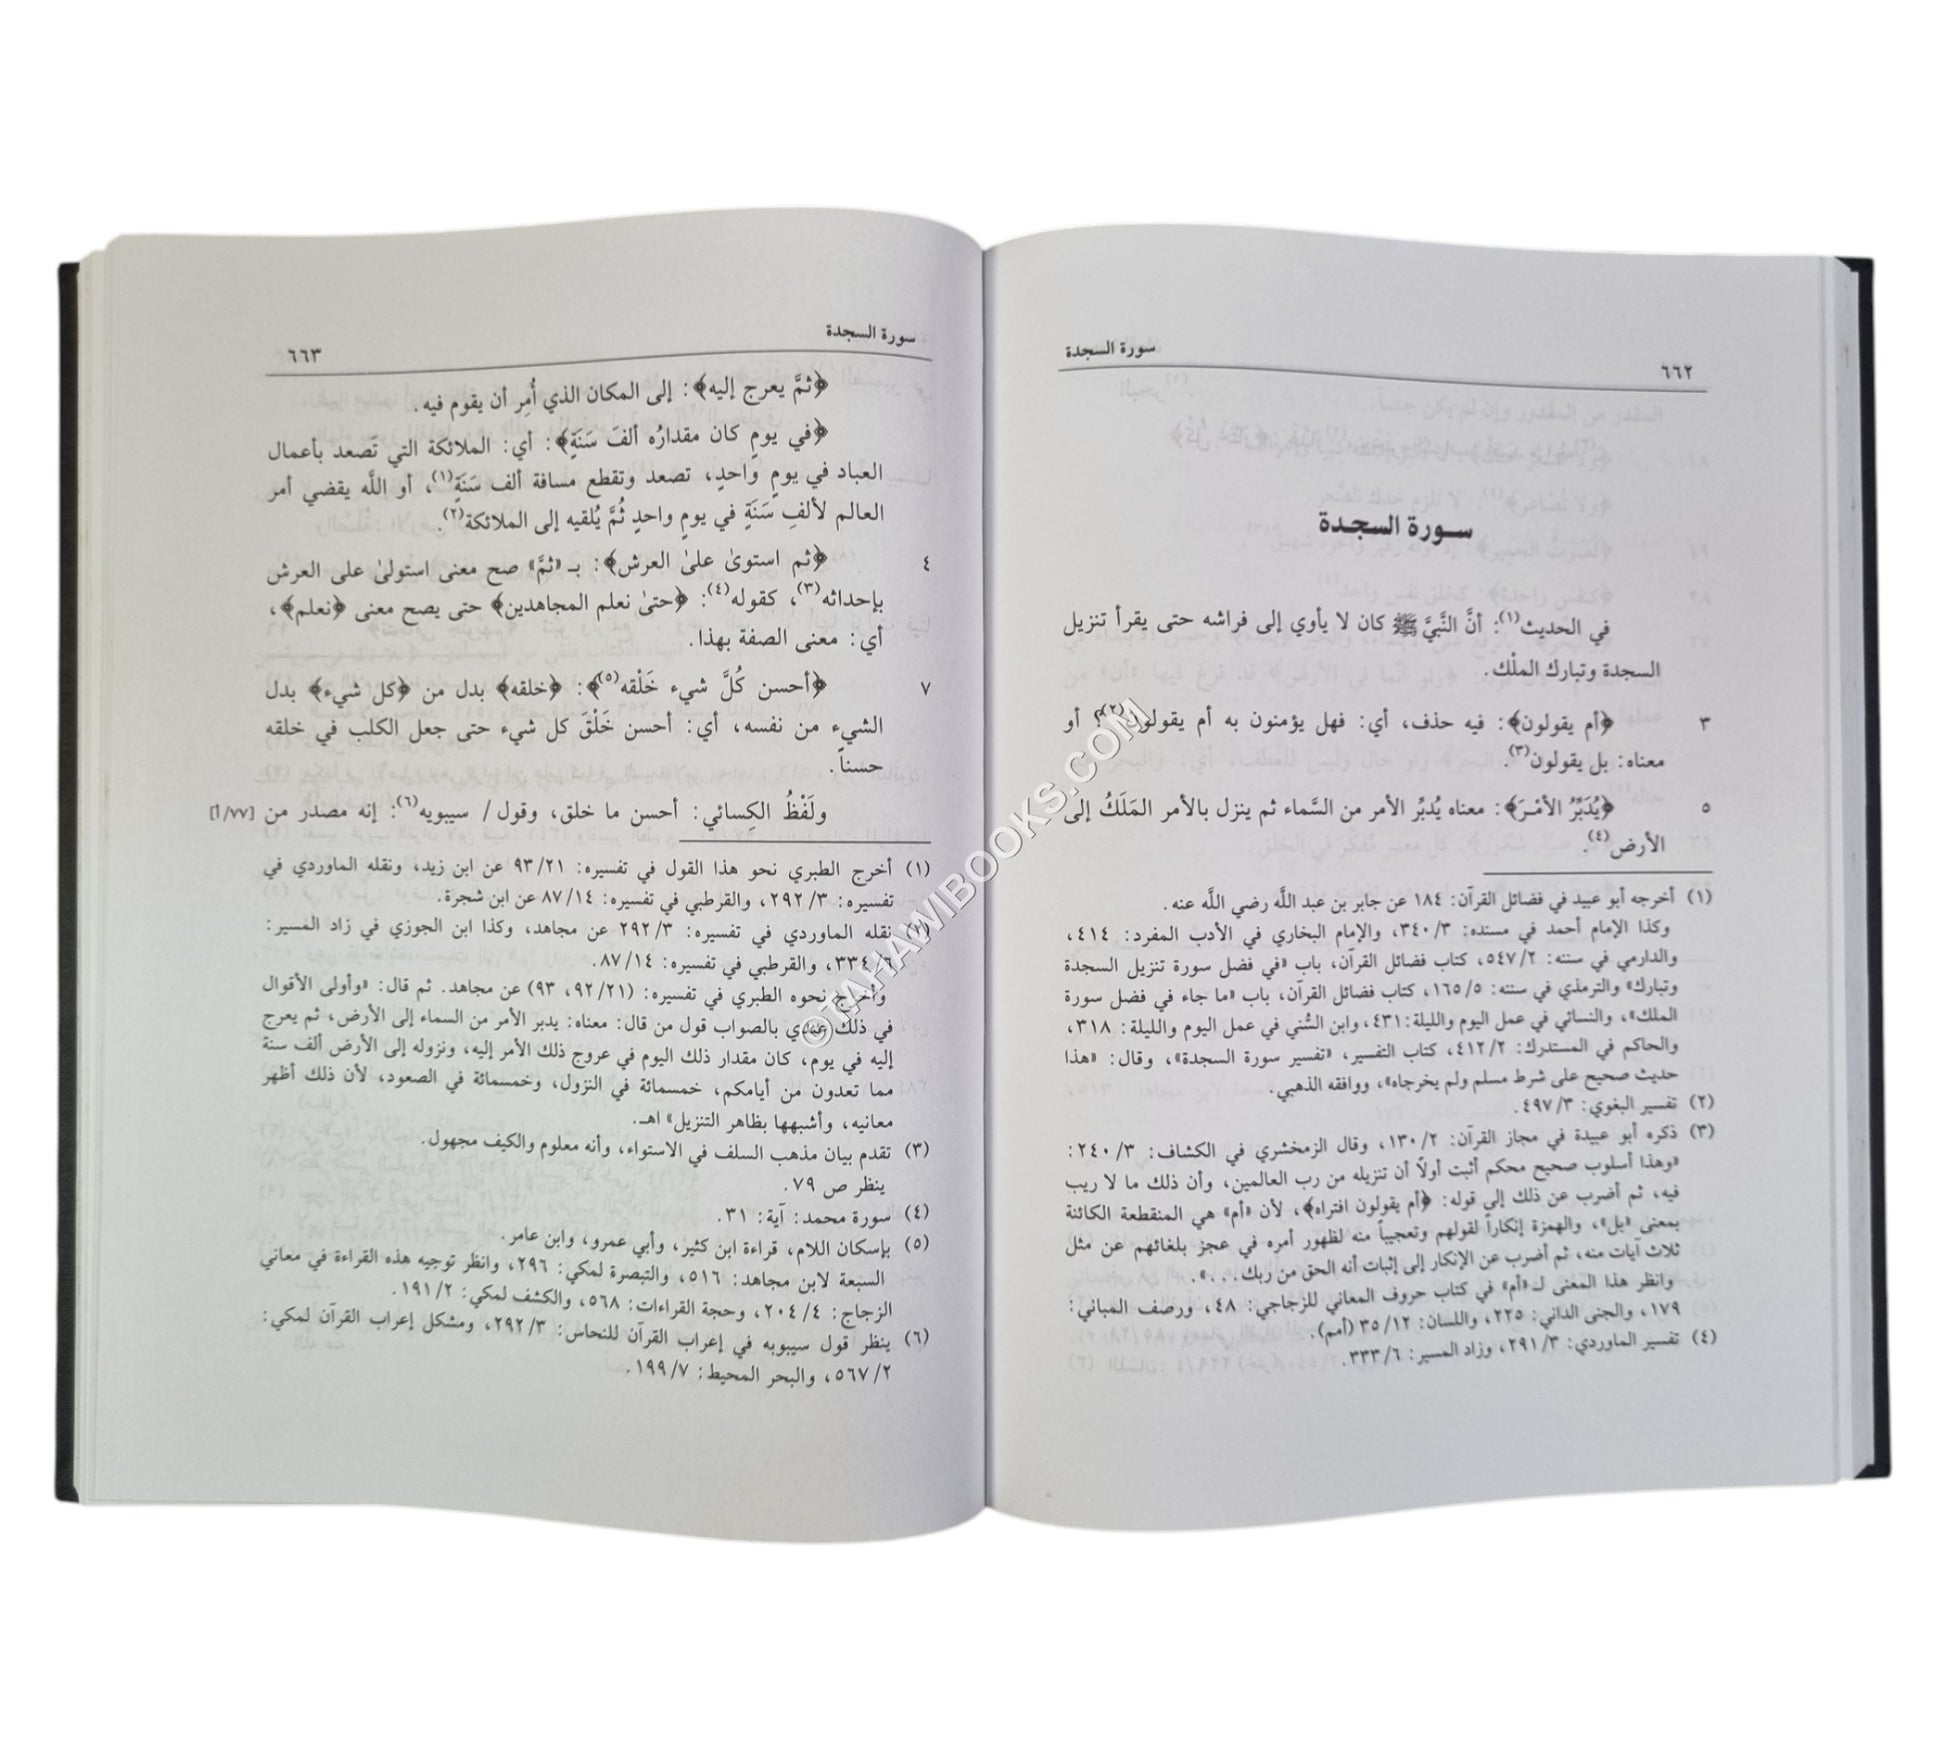 سورة السجدة
٦٦٢
سورة السجدة
في الحديث(١): أنَّ النَّبيَّ ﷺ كان لا يأوي إلى فراشه حتى يقرأ تنزيل
السجدة وتبارك الملْك.
٣ ﴿أم يقولون﴾: فيه حذف، أي: فهل يؤمنون به أم يقولون(٢)؟ أو
معناه: بل يقولون(٣).
٥ ﴿يُدَبِّرُ الأمْرَ﴾: معناه يُدبِّر الأمر من السَّماء ثم ينزل بالأمر المَلَكُ إلى
الأرض(٤).
(١) أخرجه أبو عبيد في فضائل القرآن: ١٨٤ عن جابر بن عبد اللَّه رضي اللَّه عنه.
وكذا الإمام أحمد في مسنده: ٣/ ٣٤٠، والإمام البخاري في الأدب المفرد: ٤١٤،
والدارمي في سننه: ٢/ ٥٤٧، كتاب فضائل القرآن، باب «في فضل سورة تنزيل السجدة
وتبارك» والترمذي في سننه: ٥/ ١٦٥، كتاب فضائل القرآن، باب «ما جاء في فضل سورة
الملك»، والنسائي في عمل اليوم والليلة: ٤٣١، وابن السُّني في عمل اليوم والليلة: ٣١٨،
والحاكم في المستدرك: ٢/ ٤١٢، كتاب التفسير، «تفسير سورة السجدة»، وقال: «هذا
حديث صحيح على شرط مسلم ولم يخرجاه»، ووافقه الذهبي.
(٢) تفسير البغوي: ٣/ ٤٩٧.
(٣) ذكره أبو عبيدة في مجاز القرآن: ٢/ ١٣٠، وقال الزمخشري في الكشاف: ٣/ ٢٤٠:
«وهذا أسلوب صحيح محكم أثبت أولاً أن تنزيله من رب العالمين، وأن ذلك ما لا ريب
فيه، ثم أضرب عن ذلك إلى قوله: ﴿أم يقولون افتراه﴾، لأن «أم» هي المنقطعة الكائنة
بمعنى «بل»، والهمزة إنكاراً لقولهم وتعجيباً منه لظهور أمره في عجز بلغائهم عن مثل
ثلاث آيات منه، ثم أضرب عن الإنكار إلى إثبات أنه الحق من ربك...».
وانظر هذا المعنى لـ «أم» في كتاب حروف المعاني للزجاجي: ٤٨، ورصف المباني:
١٧٩، والجنى الداني: ٢٢٥، واللسان: ١٢/ ٣٥ (أمم).
(٤) تفسير الماوردي: ٣/ ٢٩١، وزاد المسير: ٦/ ٣٣٣.
سورة السجدة
٦٦٣
﴿ثمَّ يعرج إليه﴾: إلى المكان الذي أُمِر أن يقوم فيه.
﴿في يومٍ كان مقدارُه ألفَ سَنَةٍ﴾: أي: الملائكة التي تَصعد بأعمال
العباد في يومٍ وَاحدٍ، تصعد وتقطع مسافة ألف سَنَةٍ(١)، أو اللَّه يقضي أمر
العالم لألفِ سَنَةٍ في يومٍ واحدٍ ثُمَّ يُلقيه إلى الملائكة(٢).
٤ ﴿ثم استوىٰ علىٰ العرش﴾: بـ «ثمَّ» صح معنى استولىٰ على العرش
بإحداثه(٣)، كقوله(٤): ﴿حتىٰ نعلم المجاهدين﴾ حتى يصح معنى ﴿نعلم﴾،
أي: معنى الصفة بهذا.
٧ ﴿أحسن كُلَّ شيء خَلْقه(٥)﴾: ﴿خلقه﴾ بدل من ﴿كل شيء﴾ بدل
الشيء من نفسه، أي: أحسن خَلْقَ كل شيء حتى جعل الكلب في خلقه
حسناً.
ولَفْظُ الكِسائي: أحسن ما خلق، وقول/ سيبويه(٦): إنه مصدر من [٧٧/أ]
(١) أخرج الطبري نحو هذا القول في تفسيره: ٢١/ ٩٣ عن ابن زيد، ونقله الماوردي في
تفسيره: ٣/ ٢٩٢، والقرطبي في تفسيره: ١٤/ ٨٧ عن ابن شجرة.
(٢) نقله الماوردي في تفسيره: ٣/ ٢٩٢ عن مجاهد، وكذا ابن الجوزي في زاد المسير:
٦/ ٣٣٤، والقرطبي في تفسيره: ١٤/ ٨٧.
وأخرج نحوه الطبري في تفسيره: (٢١/ ٩٢، ٩٣) عن مجاهد. ثم قال: «وأولى الأقوال
في ذلك عندي بالصواب قول من قال: معناه: يدبر الأمر من السماء إلى الأرض، ثم يعرج
إليه في يوم، كان مقدار ذلك اليوم في عروج ذلك الأمر إليه، ونزوله إلى الأرض ألف سنة
مما تعدون من أيامكم، خمسمائة في النزول، وخمسمائة في الصعود، لأن ذلك أظهر
معانيه، وأشبهها بظاهر التنزيل» اهـ.
(٣) تقدم بيان مذهب السلف في الاستواء، وأنه معلوم والكيف مجهول.
ينظر ص ٧٩.
(٤) سورة محمد: آية: ٣١.
(٥) بإسكان اللام، قراءة ابن كثير، وأبي عمرو، وابن عامر.
السبعة لابن مجاهد: ٥١٦، والتبصرة لمكي: ٢٩٦، وانظر توجيه هذه القراءة في معاني
الزجاج: ٤/ ٢٠٤، وحجة القراءات: ٥٦٨، والكشف لمكي: ٢/ ١٩١.
(٦) ينظر قول سيبويه في إعراب القرآن للنحاس: ٣/ ٢٩٢، ومشكل إعراب القرآن لمكي:
٢/ ٥٦٧، والبحر المحيط: ٧/ ١٩٩.
©TAHAWIBOOKS.COM